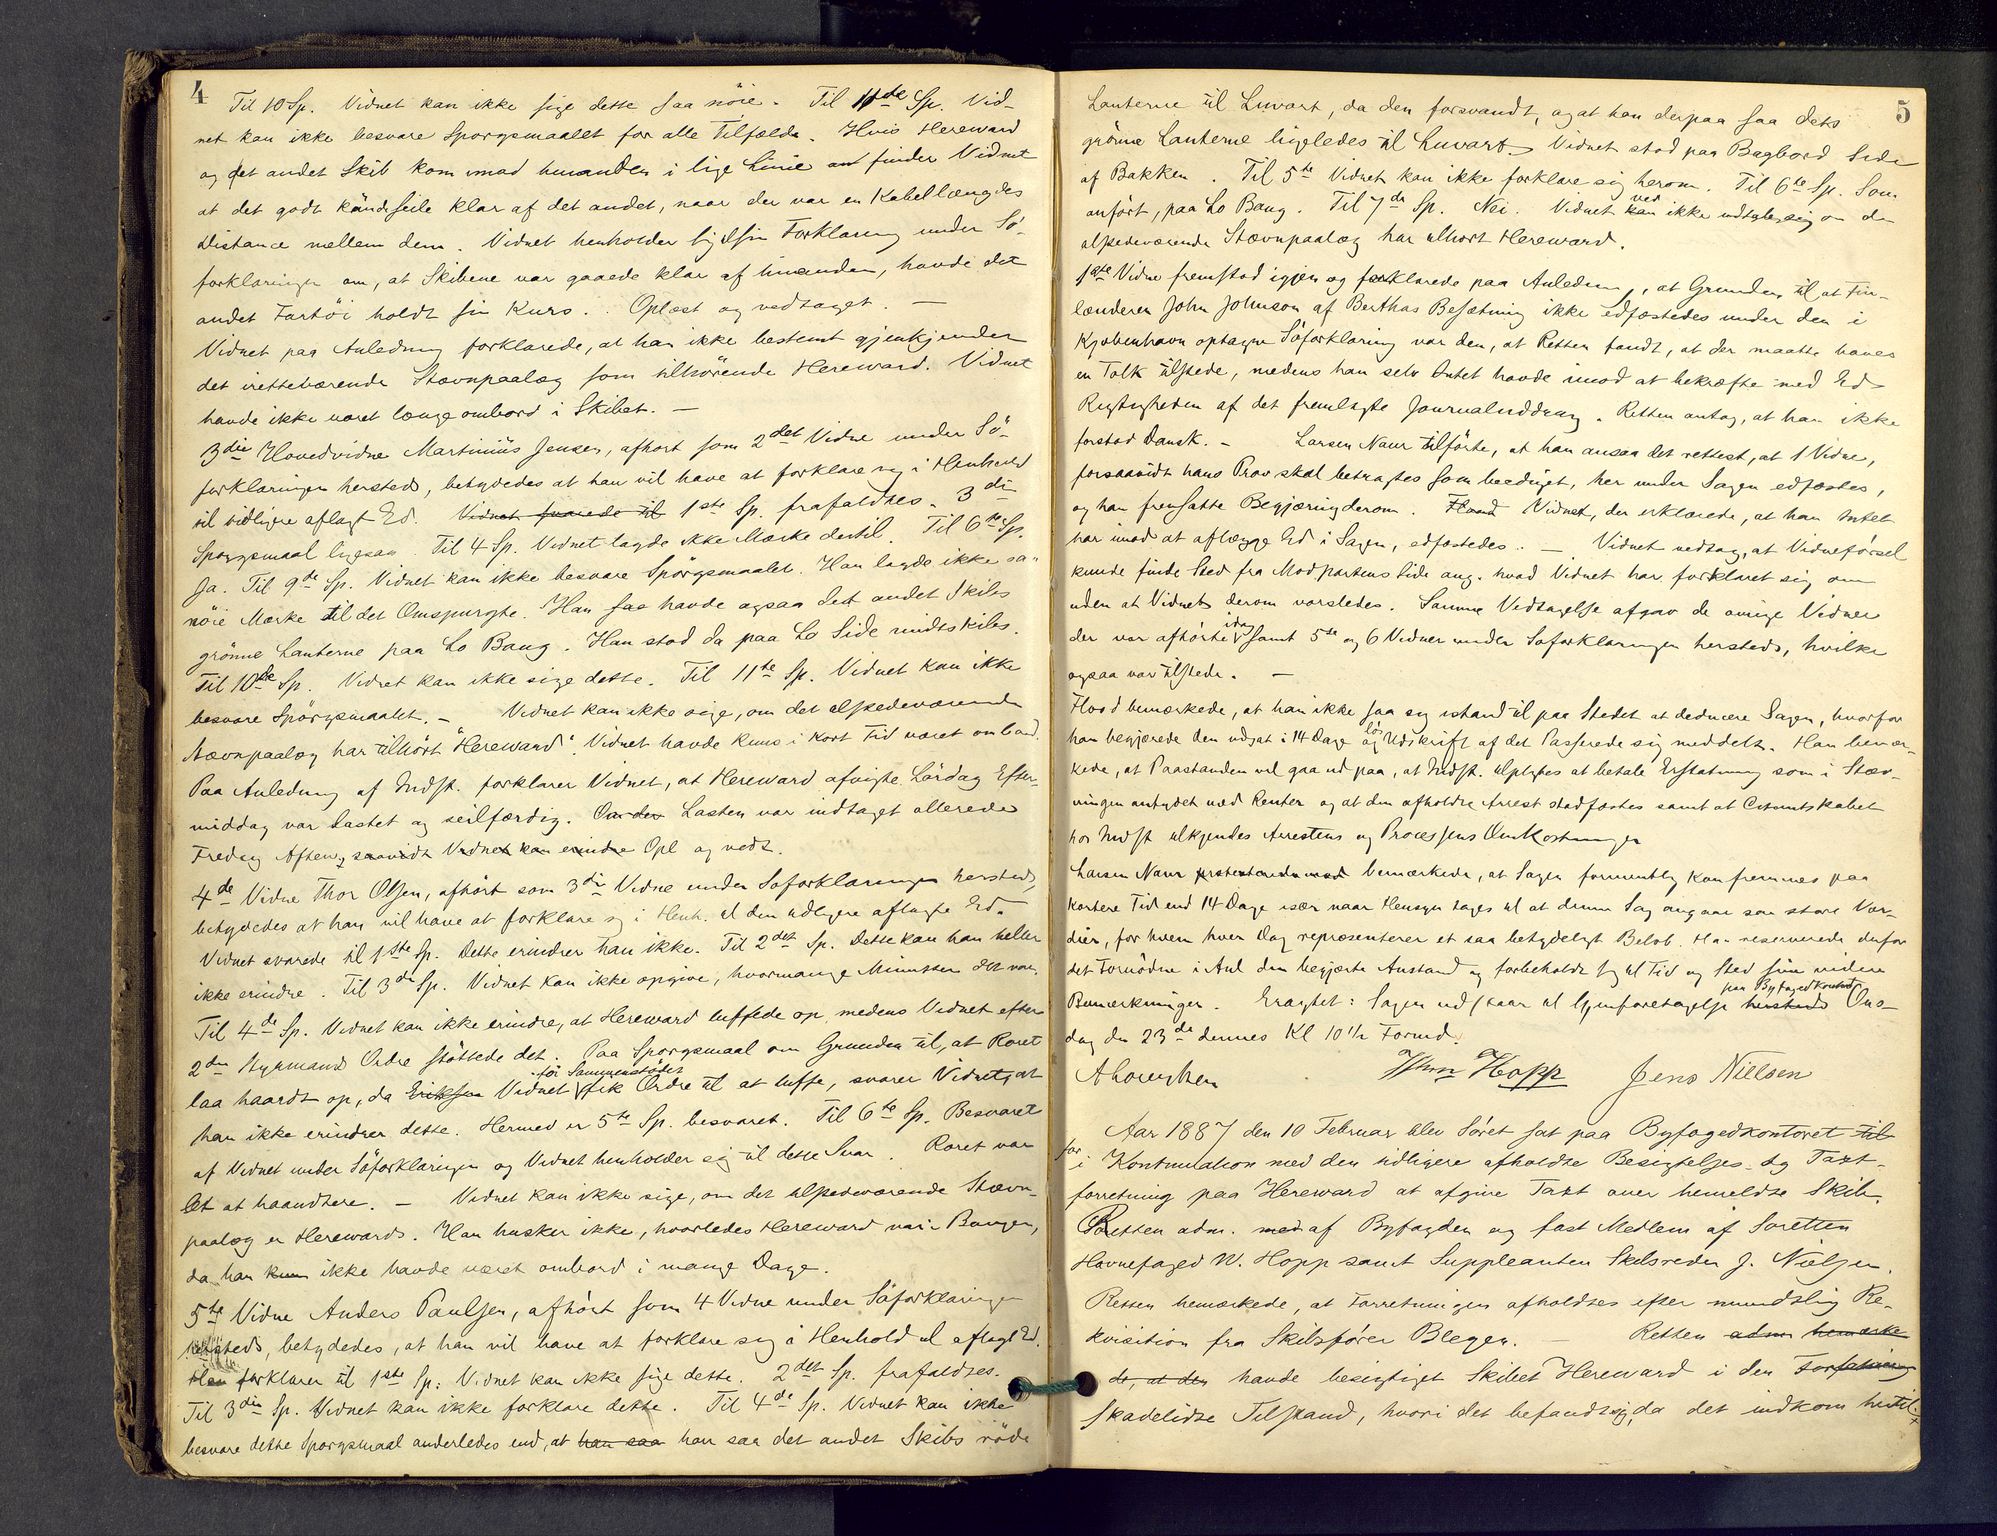 4
Til 10 Sp. Vidnet kan ikke sige dette saa nöie. Til 11te Sp. Vid-
net kan ikke besvare Spørgsmaalet for alle Tilfælde. Hvis Hereward
og det andet Skib kom imod hinanden i lige Linie finder Vidnet
at det godt kunde seile klar af det andet, naar der var en Kabellængdes
Distance mellem dem. Vidnet henholder sig til sin Forklaring under Sö-
forklaringen om, at Skibene var gaaede klar af hinanden, havde det
andet Fartöi holdt sin Kurs. Oplæst og vedtaget. —
Vidnet paa Anledning forklarede, at han ikke bestemt gjenkjender
det iretteværende Stævnpaalæg som tilhørende Hereward. Vidnet
havde ikke været længe ombord i Skibet. —
3die Hovedvidne Martinius Jensen, afhørt som 2det Vidne under Sö-
forklaringen hersteds, betydedes at han vil have at forklare sig i Henhold
til tidligere aflagt Ed. Vidnet svarede til 1ste Sp. frafaldtes. 3die
Spørgsmaal ligesaa. Til 4 Sp. Vidnet lagde ikke Mærke dertil. Til 6te Sp.
Ja. Til 9de Sp. Vidnet kan ikke besvare Spörgsmaalet. Han lagde ikke saa
nöie Mærke til det Omspurgte. Han havde ogsaa det andet Skibs
grönne Lanterne paa Lo Boug. Han stod da paa Lo Side midtskibs.
Til 10de Sp. Vidnet kan ikke sige dette. Til 11te Sp. Vidnet kan ikke
besvare Spörgsmaalet. — Vidnet kan ikke sige, om det tilstedeværende
Stævnpaalæg har tilhört "Hereward". Vidnet havde kuns i kort Tid været ombord.
Paa Anledning af Indst. forklarer Vidnet, at Hereward afvigte Lördag Efter-
middag var lastet og seilfærdig. Lasten var indtaget allerede
Fredag Aften, saavidt Vidnet kan erindre Opl og vedt.
4de Vidne Thor Olsen, afhört som 3die Vidne under Søforklaringen hersteds,
betydedes at han vil have at forklare sig i Henh. til den tidligere aflagte Ed.
Vidnet svarede til 1ste Sp. Dette erindrer han ikke. Til 2det Sp. Dette kan han heller
ikke erindre. Til 3die Sp. Vidnet kan ikke opgive, hvormange Minutter det var.
Til 4de Sp. Vidnet kan ikke erindre, at Hereward luffede op, medens Vidnet efter
2den Styrmands Ordre støttede det. Paa Spørgsmaal om Grunden til, at Roret
laa haardt op, da Vidnet för Sammenstödet fik Ordre til at luffe, svarer Vidnet, at
han ikke erindrer dette. Hermed er 5te Sp. besvaret. Til 6te Sp. Besvaret
af Vidnet under Söforklaringen og Vidnet henholder sig til dette Svar. Roret var
let at haandtere. — Vidnet kan ikke sige, om det tilstedeværende Stævn-
paalæg er Herewards. Han husker ikke, hvorledes Hereward var i Bougen,
da han kun ikke havde været ombord i mange Dage.
5te Vidne Anders Paulsen, afhört som 4 Vidne under Söforklaringen
hersteds, betydedes, at han vil have at forklare sig i Henhold til aflagt Ed.
Han forklarer til 1ste Sp.: Vidnet kan ikke sige dette. 2det Sp. frafaldtes.
Til 3die Sp. Vidnet kan ikke forklare dette. Til 4de Sp. Vidnet kan ikke
besvare dette Spørgsmaal anderledes end, at han saa han saa det andet Skibs röde
5
Lanterne til Luvart, da den forsvandt, og at han derpaa saa dets
grönne Lanterne ligeledes til Luvart. Vidnet stod paa Bagbord Side
af Bakken. Til 5te Vidnet kan ikke forklare sig herom. Til 6te Sp. Som
anfört, paa Lo Boug. Til 7de Sp. Nei. Vidnet ved kan ikke udtale sig om det
tilstedeværende Stævnpaalæg har tilhört Hereward.
1ste Vidne fremstod igjen og forklarede paa Anledning, at Grunden til at Fin-
lænderen John Johnson af Berthas Besætning ikke edfæstedes under den i
Kjøbenhavn optagne Söforklaring var den, at Retten fandt, at der maatte haves
en Tolk tilstede, medens han selv Intet havde imod at bekræfte med Ed
Rigtigheden af det fremlagte Journaluddrag. Retten antog, at han ikke
forstod Dansk. — Larsen Naur tilförte, at han ansaa det rettest, at 1 Vidne,
forsaavidt hans Prov skal betragtes som beediget, her under Sagen edfæstes,
og han fremsatte Begjæring derom. Vidnet, der erklærede, at han Intet
har imod at aflægge Ed i Sagen, edfæstedes. — Vidnet vedtog, at Vidneförsel
kunde finde Sted fra Modpartens Side ang. hvad Vidnet har forklaret sig om
uden at Vidnet derom varsledes. Samme Vedtagelse afgav de øvrige Vidner
der var afhörte idag samt 5te og 6 Vidner under Søforklaringen hersteds, hvilke
ogsaa var tilstede. —
Flood bemærkede, at han ikke saa sig istand til paa Stedet at deducere Sagen, hvorfor
han begjærede den udsat i 14 Dage og Udskrift af det Passerede sig meddelt. Han bemær-
kede, at Paastanden vil gaa ud paa, at Indst. tilpligtes at betale Erstatning som i Stæv-
ningen antydet med Renter og at den afholdte Arrest stadfæstes samt at Citantskabet
hos Indst tilkjendes Arrestens og Processens Omkostninger
Larsen Naur bemærkede, at Sagen formentlig kan fremmes paa
kortere Tid end 14 Dage især naar Hensyn tages til at denne Sag angaar saa store Vær-
dier, for hvem hver Dag repræsenterer et saa betydeligt Beløb. Han reserverede derfor
det Fornødne i Anl den begjærte Anstand og forbeholdt sig til Tid og Sted sine videre
Bemærkninger. Eragtet: Sagen udstaar til Gjenforetagelse hersteds paa Byfogedkontoret Ons-
dag den 23de dennes Kl 10 1/2 Formd.
Hopp Jens Nielsen
Aar 1887 den 10 Februar blev Söret sat paa Byfogedkontoret til
for i Kontinuation med den tidligere afholdte Besigtelses- og Taxt-
forretning paa Hereward at afgive Taxt over bemeldte Skib.
Retten adm. med af Byfogden og fast Medlem af Søretten
Havnefoged W. Hopp samt Suppleanten Skibsreder J. Nielsen.
Retten bemærkede, at Forretningen afholdtes efter mundtlig Re-
kvisition fra Skibsfører Blegen. — Retten adm bemærke
de, at den havde besigtiget Skibet Hereward i den Forfatning
skadelidte Tilstand, hvori det befandt sig, da det indkom hertil.